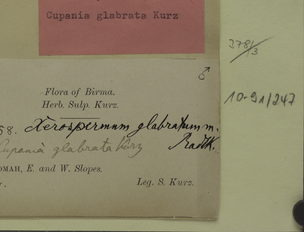 Cupania glabrata Kurz
♂
278/3
Flora of Birma.
Herb. Sulp. Kurz.
10-91/247
68. Xerospermum glabratum m.
Radlk.
Cupania glabrata Kurz
OMAH, E. and W. Slopes.
Leg. S. Kurz.